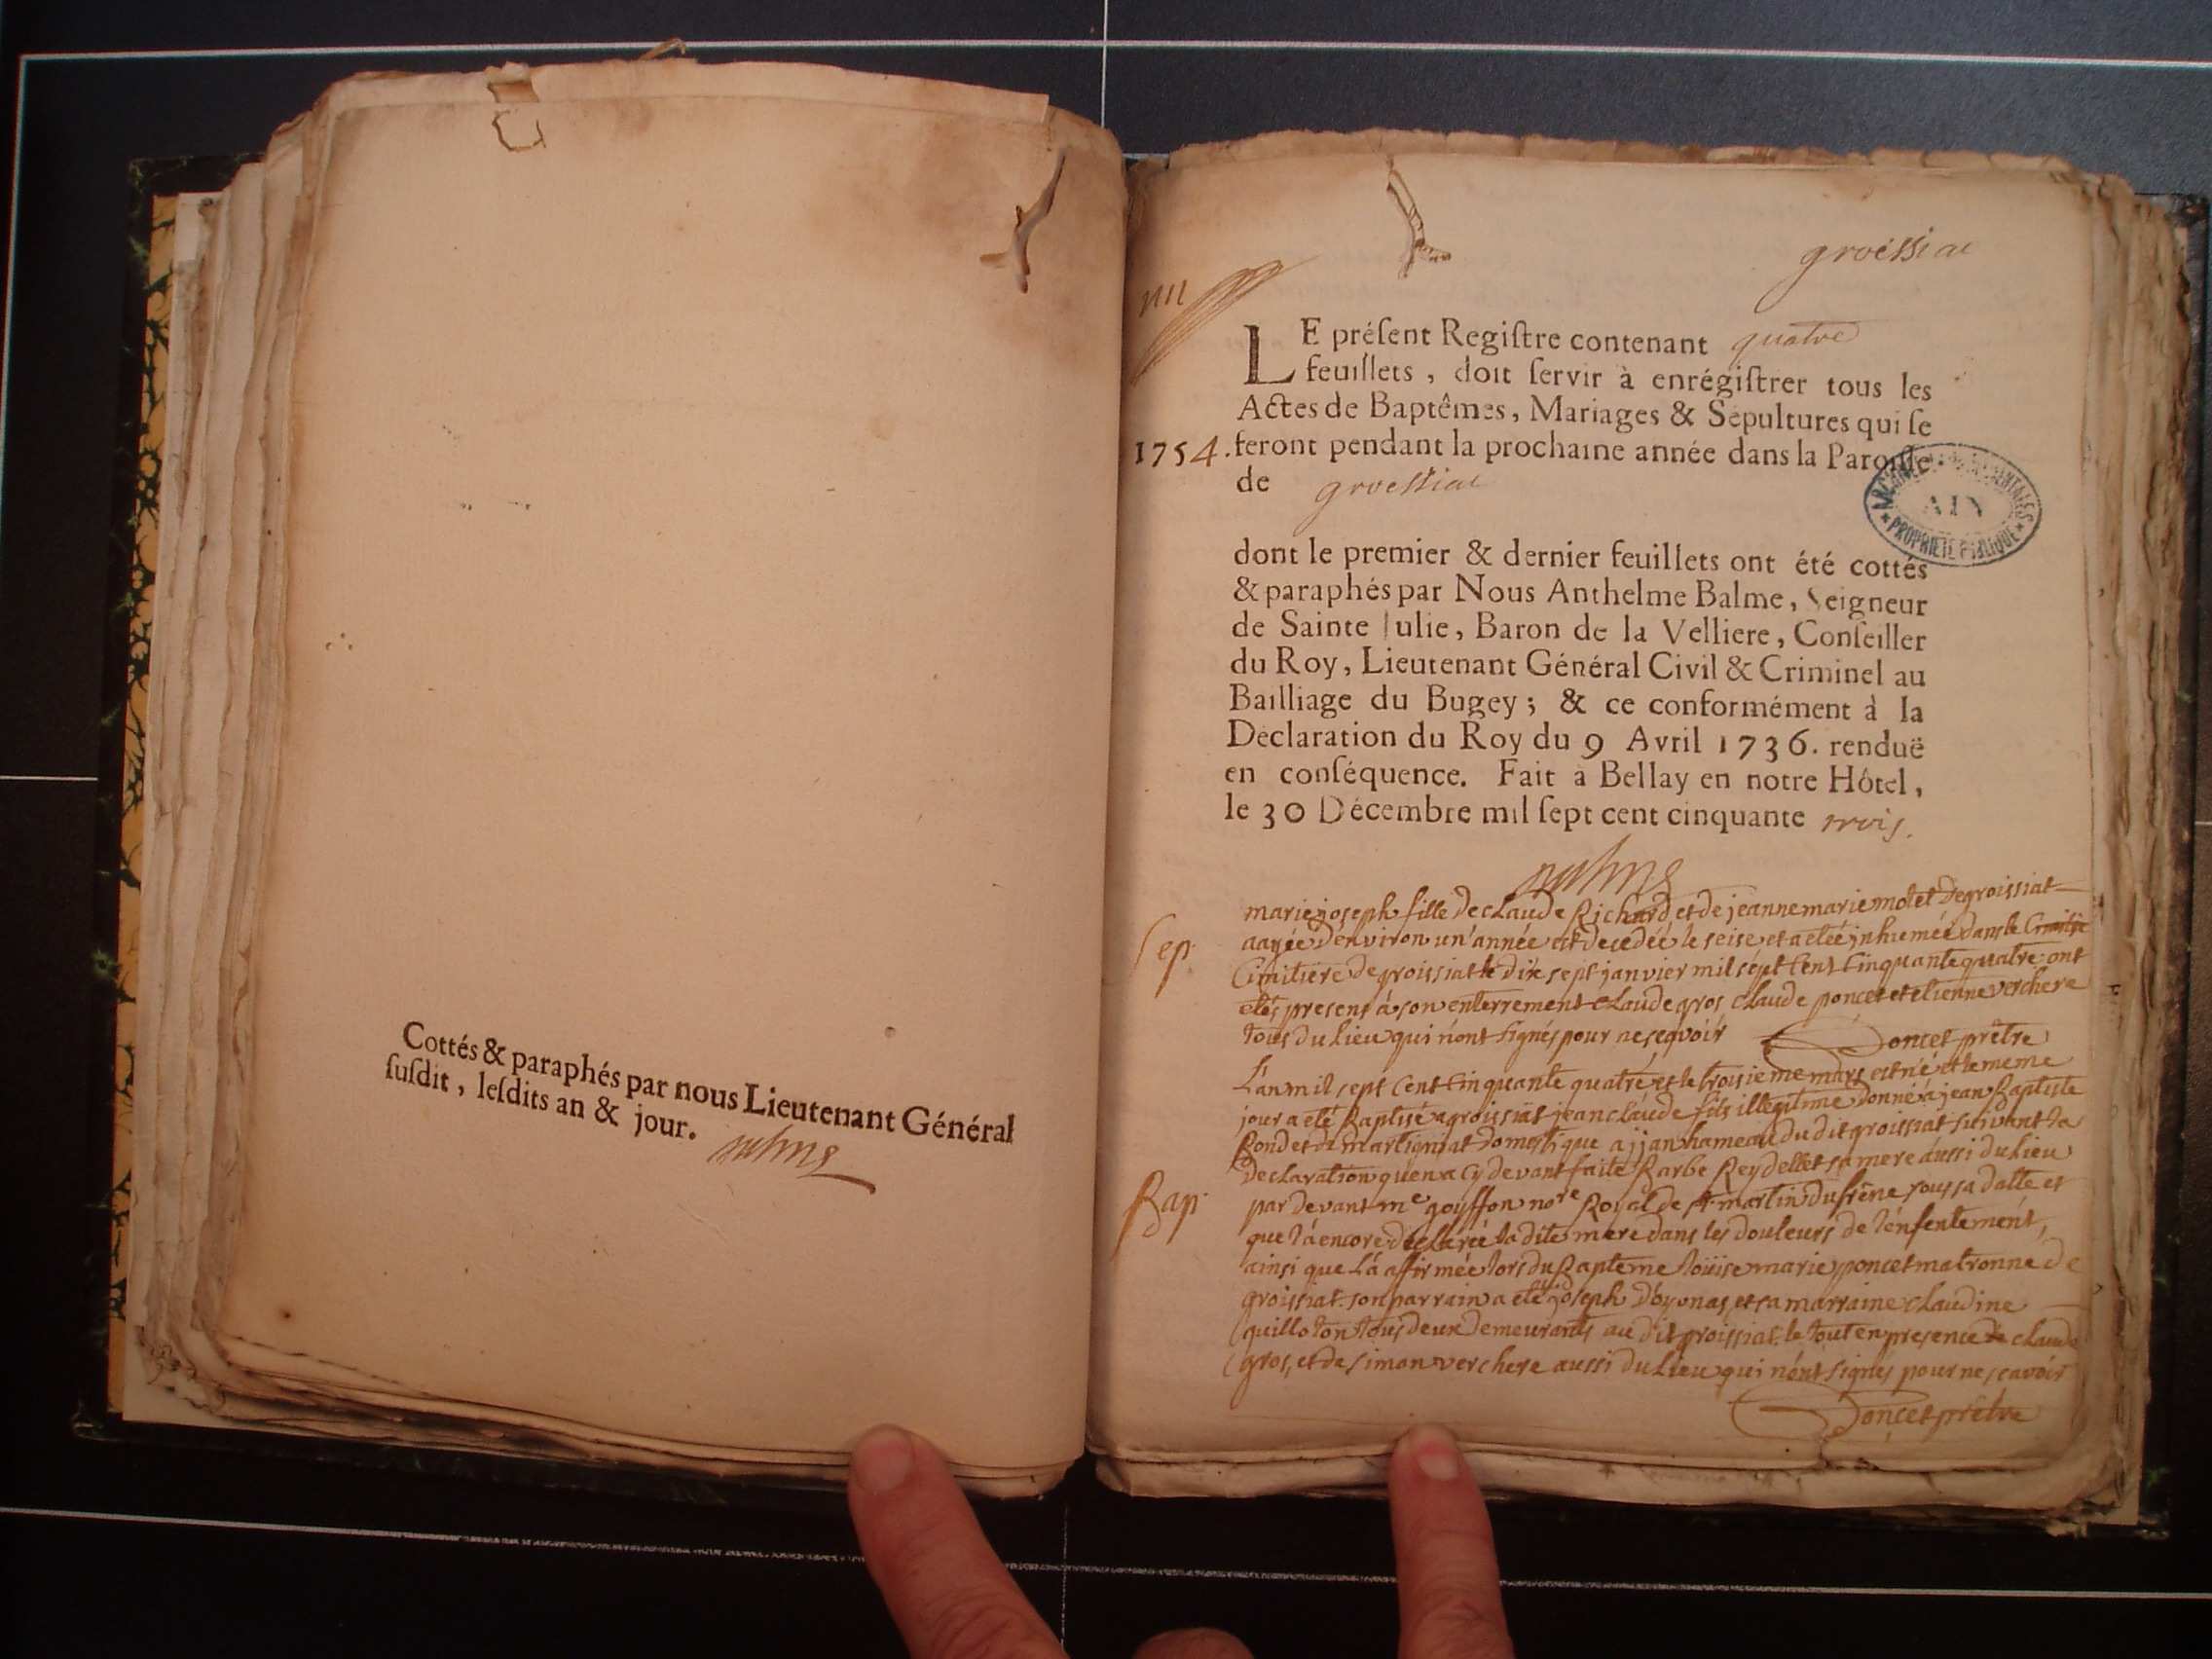 Cottés & paraphés par nous Lieutenant Général
ſuſdit, leſdits an & jour.
groissiac
LE préſent Regiſtre contenant quatre
feuillets, doit ſervir à enrégiſtrer tous les
Actes de Baptêmes, Mariages & Sépultures qui ſe
1754. feront pendant la prochaine année dans la Paroiſſe
de groissiac
ARCHIVES DEPARTEMENTALES
AIN
PROPRIETE PUBLIQUE
dont le premier & dernier feuillets ont été cottés
& paraphés par Nous Anthelme Balme, Seigneur
de Sainte Julie, Baron de la Velliere, Conſeiller
du Roy, Lieutenant Général Civil & Criminel au
Bailliage du Bugey; & ce conformément à la
Déclaration du Roy du 9 Avril 1736. renduë
en conſéquence. Fait à Bellay en notre Hôtel,
le 30 Décembre mil ſept cent cinquante trois.
marie joseph fille de claude Richard et de jeanne marie motet de groissiat
Sep. aagée d'environ un année est decedée le seise et a etée inhumée dans le
Cimitiere de groissiat le dix sept janvier mil sept cent cinquante quatre ont
etés presens à son enterrement claude gros claude poncet et etienne verchere
tous du lieu qui n'ont signés pour ne sçavoir Poncet prêtre
L'an mil sept cent cinquante quatre et le troisieme mars est né et le meme
jour a eté Baptisé a groissiat jean claude fils illegitime donné à jean Baptiste
Rondet de martignat domestique a ijan hameau du dit groissiat suivant la
declaration qu'en a cy devant faite Barbe Reydellet sa mere aussi du lieu
Bap. par devant me gouffon nore Royal de st martin du frêne sous sa datte et
que l'a encore declarée la dite mere dans les douleurs de l'enfentement,
ainsi que l'a affirmée lors du Bapteme loüise marie poncet matronne de
groissiat. son parrain a eté joseph d'oyonas et sa marraine claudine
quilloton tous deux demeurants au dit groissiat. le tout en presence de claude
gros, et de simon verchere aussi du lieu qui n'ont signés pour ne sçavoir
Poncet prêtre